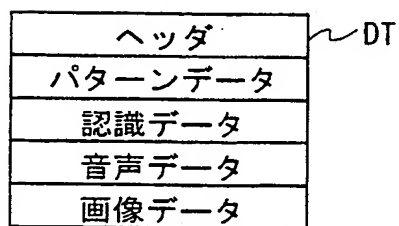 ヘッダ DT
パターンデータ
認識データ
音声データ
画像データ